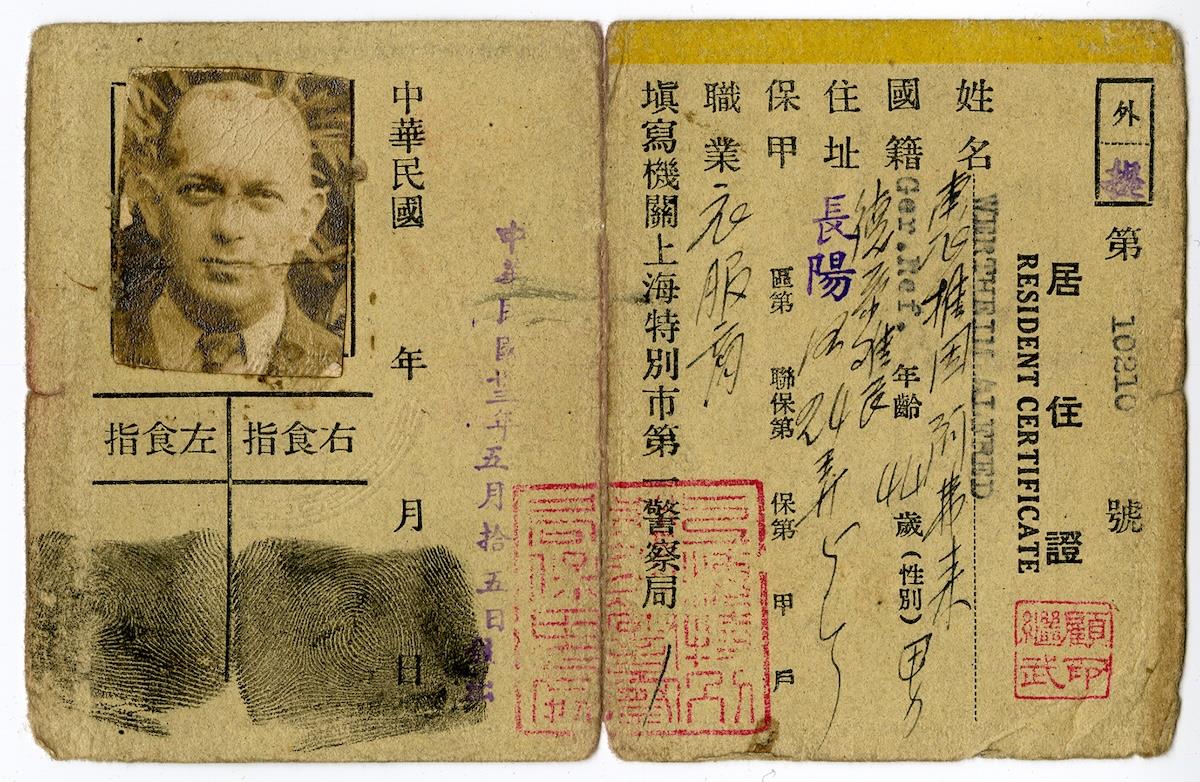 外
第 10210 號
居住證
RESIDENT CERTIFICATE
WERTHEIM ALFRED
姓名
阿弗来
國籍 德
Ger.Ref. 年齡 44 歲(性別)男
住址 長陽 24弄
保甲 區第 聯保第 保第 甲 戶
職業 衣服商
填寫機關上海特別市第一警察局
顧繼武印
中華民國三十三年五月拾五日
中華民國 年 月 日
右食指
左食指